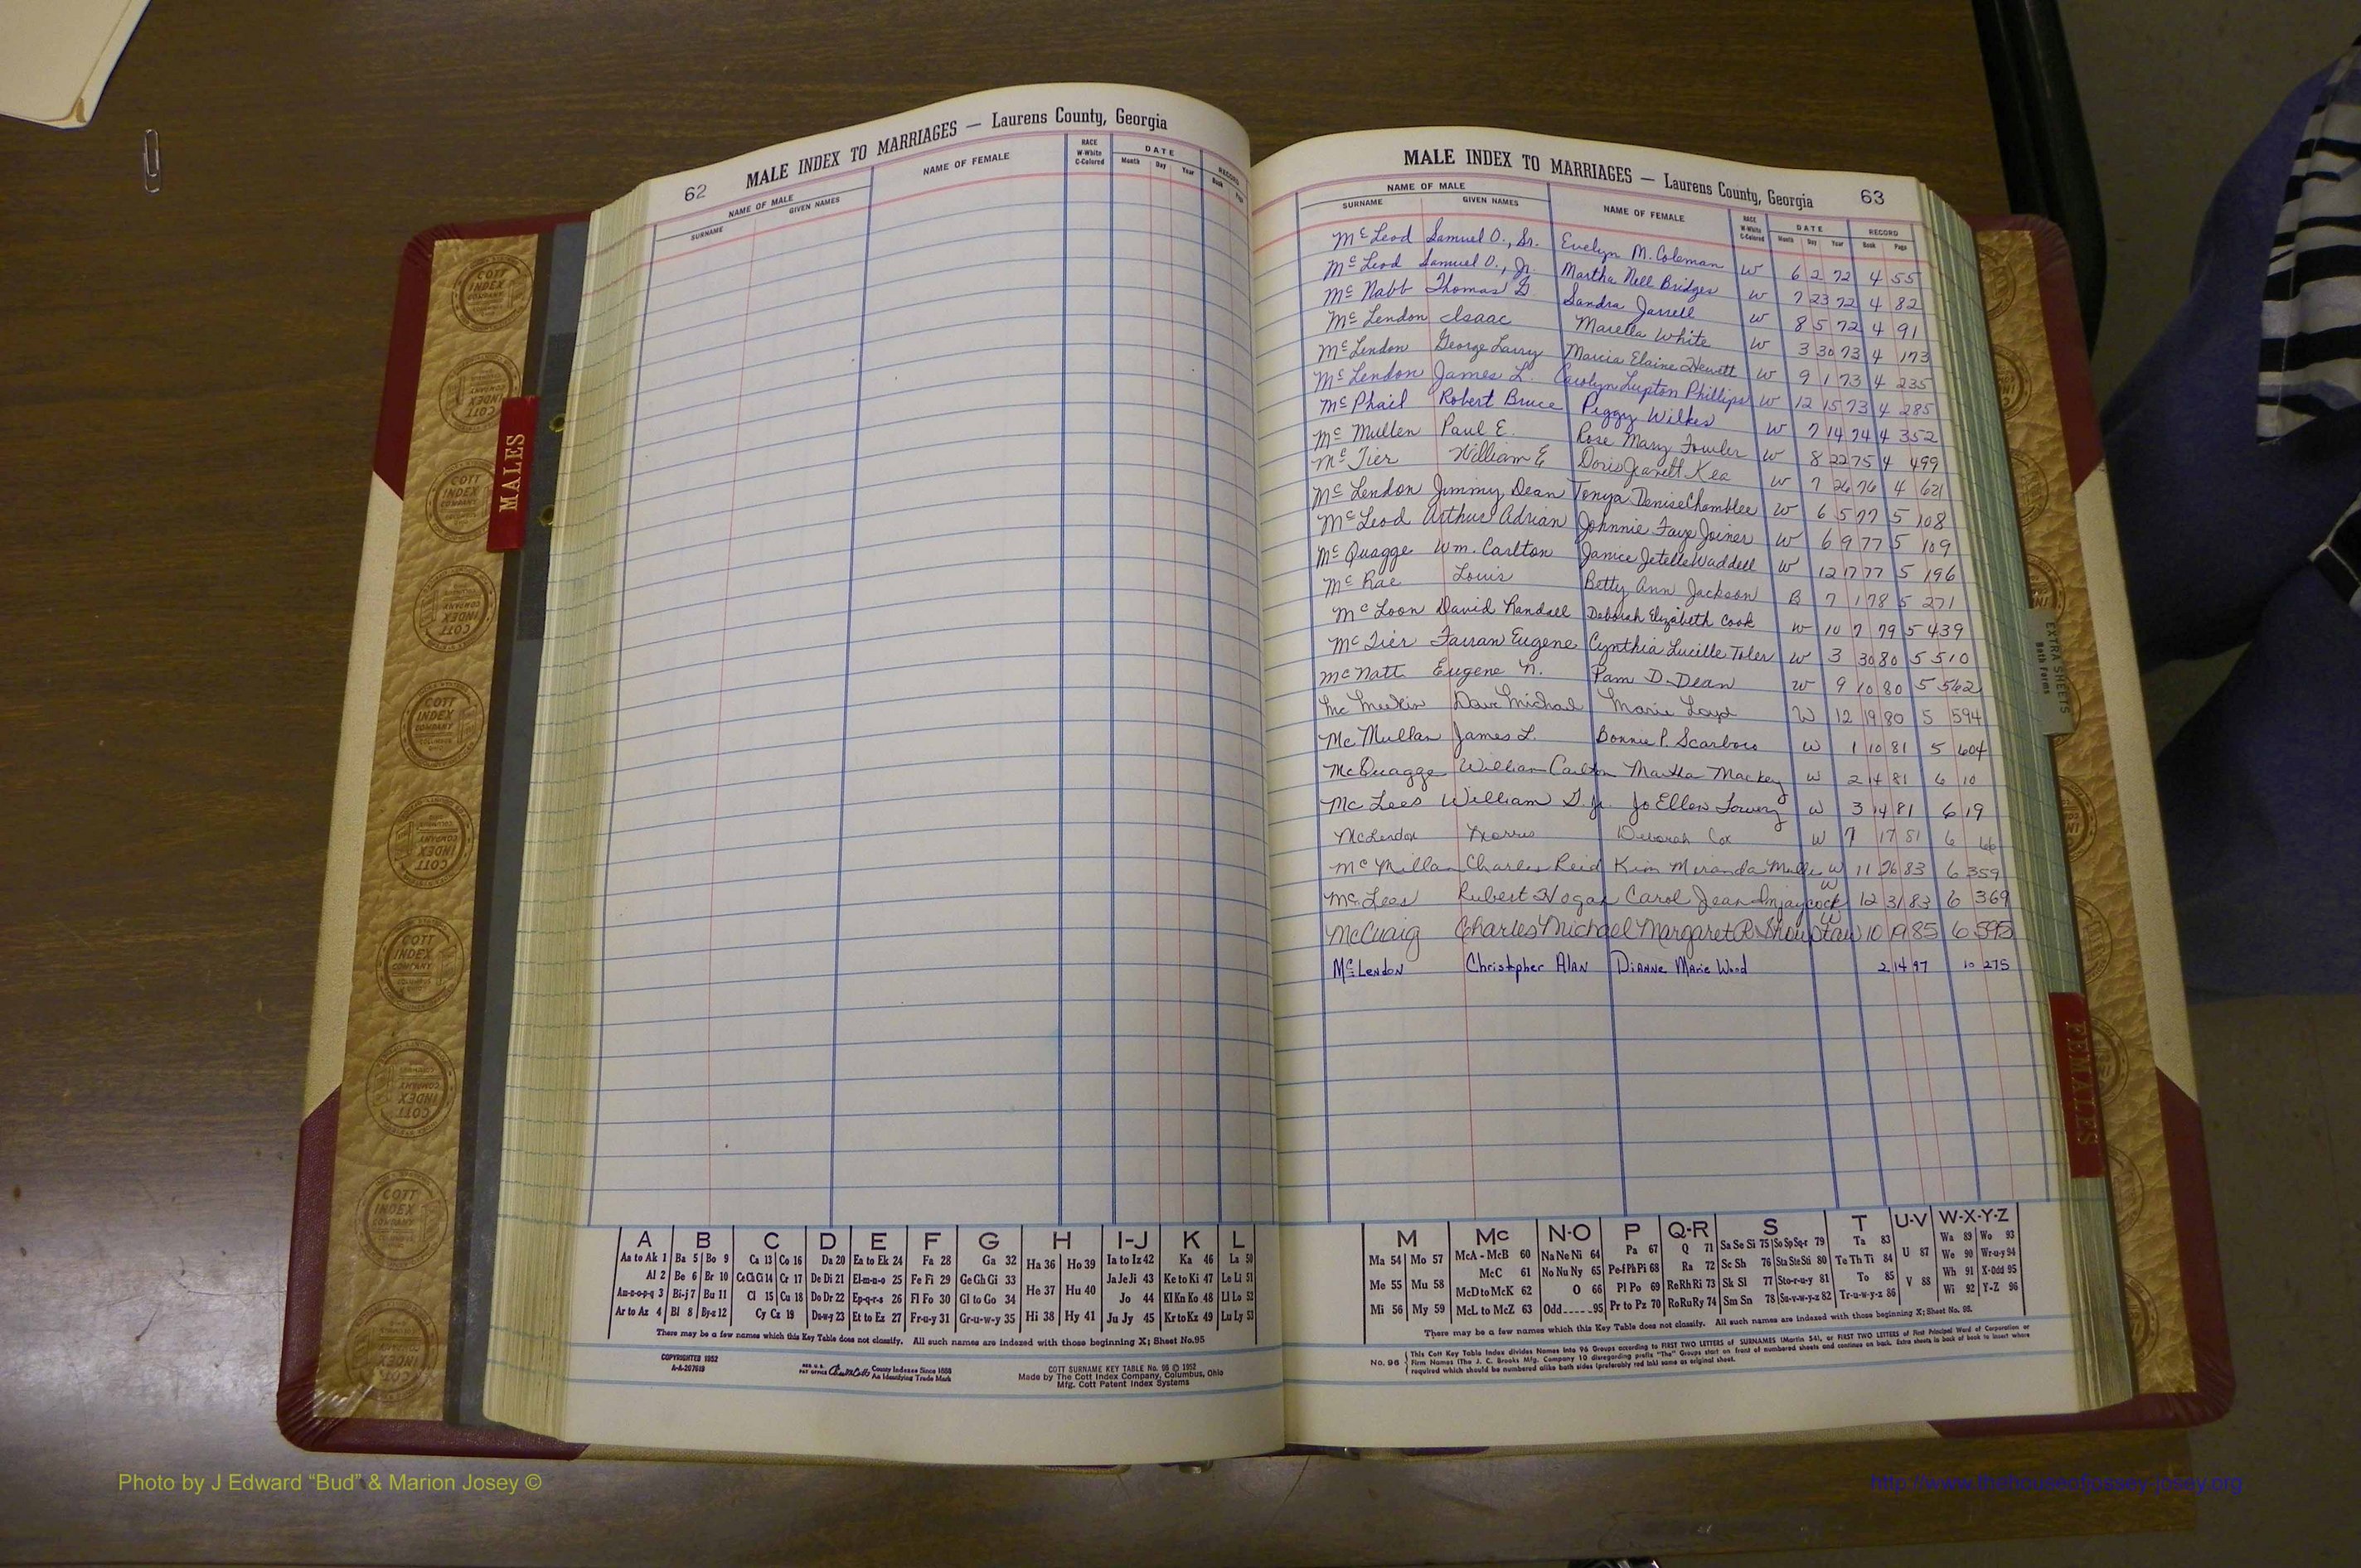 62 MALE INDEX TO MARRIAGES — Laurens County, Georgia
NAME OF MALE NAME OF FEMALE RACE W-White C-Colored DATE RECORD
SURNAME GIVEN NAMES Month Day Year Book Page
MALE INDEX TO MARRIAGES — Laurens County, Georgia 63
NAME OF MALE NAME OF FEMALE RACE W-White C-Colored DATE RECORD
SURNAME GIVEN NAMES Month Day Year Book Page
McLeod Samuel O., Sr. Evelyn M. Coleman W 6 2 72 4 55
McLeod Samuel O., Jr. Martha Nell Bridges W 7 23 72 4 82
McNabb Thomas G. Sandra Jarrell W 8 5 72 4 91
McLendon Isaac Marella White W 3 30 73 4 173
McLendon George Larry Marcia Elaine Hewett W 9 1 73 4 235
McLendon James L. Carolyn Lupton Phillips W 12 15 73 4 285
McPhail Robert Bruce Peggy Wilkes W 7 14 74 4 352
McMullen Paul E. Rose Mary Fowler W 8 22 75 4 499
McTier William E Doris Jeanett Kea W 7 26 76 4 621
McLendon Jimmy Dean Tonya Denise Chamblee W 6 5 77 5 108
McLeod Arthur Adrian Johnnie Faye Joiner W 6 9 77 5 109
McQuagge Wm. Carlton Janice Jetelle Waddell W 12 17 77 5 196
McRae Louis Betty Ann Jackson B 7 1 78 5 271
McLoon David Randall Deborah Elizabeth Cook W 10 7 79 5 439
McTier Farran Eugene Cynthia Lucille Toler W 3 30 80 5 510
McNatt Eugene N. Pam D. Dean W 9 10 80 5 562
McMeekin Dave Michael Marie Loyd W 12 19 80 5 594
McMullan James L. Bonnie P. Scarboro W 1 10 81 5 604
McQuagge William Carlton Martha Mackey W 2 14 81 6 10
McLees William S. Jr. Jo Ellen Lowery W 3 14 81 6 19
McLendon Norris Deborah Cox W 7 17 81 6 66
McMillan Charles Reid Kim Miranda W 11 26 83 6 359
McLees Robert Hogan Carol Jean Injaycock W 12 31 83 6 369
McCuaig Charles Michael Margaret R. W 10 19 85 6 595
McLendon Christopher Alan Dianne Marie Wood 2 14 97 10 275
A B C D E F G H I-J K L
Aa to Ak 1 Ba 5 Bo 9 Ca 13 Co 16 Da 20 Ea to Ek 24 Fa 28 Ga 32 Ha 36 Ho 39 Ia to Iz 42 Ka 46 La 50
Al 2 Be 6 Br 10 Ce Ch Ci 14 Cr 17 De Di 21 El-m-n-o 25 Fe Fi 29 Ge Gh Gi 33 He 37 Hu 40 Ja Je Ji 43 Ke to Ki 47 Le Li 51
Am-n-o-p-q 3 Bi-j 7 Bu 11 Cl 15 Cu 18 Do Dr 22 Ep-q-r-s 26 Fl Fo 30 Gl to Go 34 Jo 44 Kl Kn Ko 48 Ll Lo 52
Ar to Az 4 Bl 8 By-z 12 Cy Cz 19 Du-w-y 23 Et to Ez 27 Fr-u-y 31 Gr-u-w-y 35 Hi 38 Hy 41 Ju Jy 45 Kr to Kz 49 Lu Ly 53
There may be a few names which this Key Table does not classify. All such names are indexed with those beginning X; Sheet No. 95
COPYRIGHTED 1952
A-A-207619
REG. U.S. PAT OFFICE County Indexes Since 1888
An Identifying Trade Mark
COTT SURNAME KEY TABLE No. 96 © 1952
Made by The Cott Index Company, Columbus, Ohio
Mfg. Cott Patent Index Systems
M Mc N-O P Q-R S T U-V W-X-Y-Z
Ma 54 Mo 57 McA - McB 60 Na Ne Ni 64 Pa 67 Q 71 Sa Se Si 75 So Sp Sq-r 79 Ta 83 U 87 Wa 89 Wo 93
McC 61 No Nu Ny 65 Pe-f Ph Pi 68 Ra 72 Sc Sh 76 Sta Ste Sti 80 Te Th Ti 84 We 90 Wr-u-y 94
Me 55 Mu 58 McD to McK 62 O 66 Pl Po 69 Re Rh Ri 73 Sk Sl 77 Sto-r-u-y 81 To 85 V 88 Wh 91 X-Odd 95
Mi 56 My 59 McL to McZ 63 Odd-----95 Pr to Pz 70 Ro Ru Ry 74 Sm Sn 78 Su-v-w-y-z 82 Tr-u-w-y-z 86 Wi 92 Y-Z 96
There may be a few names which this Key Table does not classify. All such names are indexed with those beginning X; Sheet No. 95.
No. 96 This Cott Key Table Index divides Names into 96 Groups according to FIRST TWO LETTERS of SURNAMES (Martin 54), or FIRST TWO LETTERS of First Principal Word of Corporation or
Firm Names (The J. C. Brooks Mfg. Company 10 disregarding prefix "The" Groups start on front of numbered sheets and continue on back. Extra sheets in back of book to insert where
required which should be numbered alike both sides (preferably red ink) same as original sheet.
MALES
FEMALES
EXTRA SHEETS
Both Forms
COTT INDEX COMPANY
Photo by J Edward “Bud” & Marion Josey ©
http://www.thehouseofjossey-josey.org